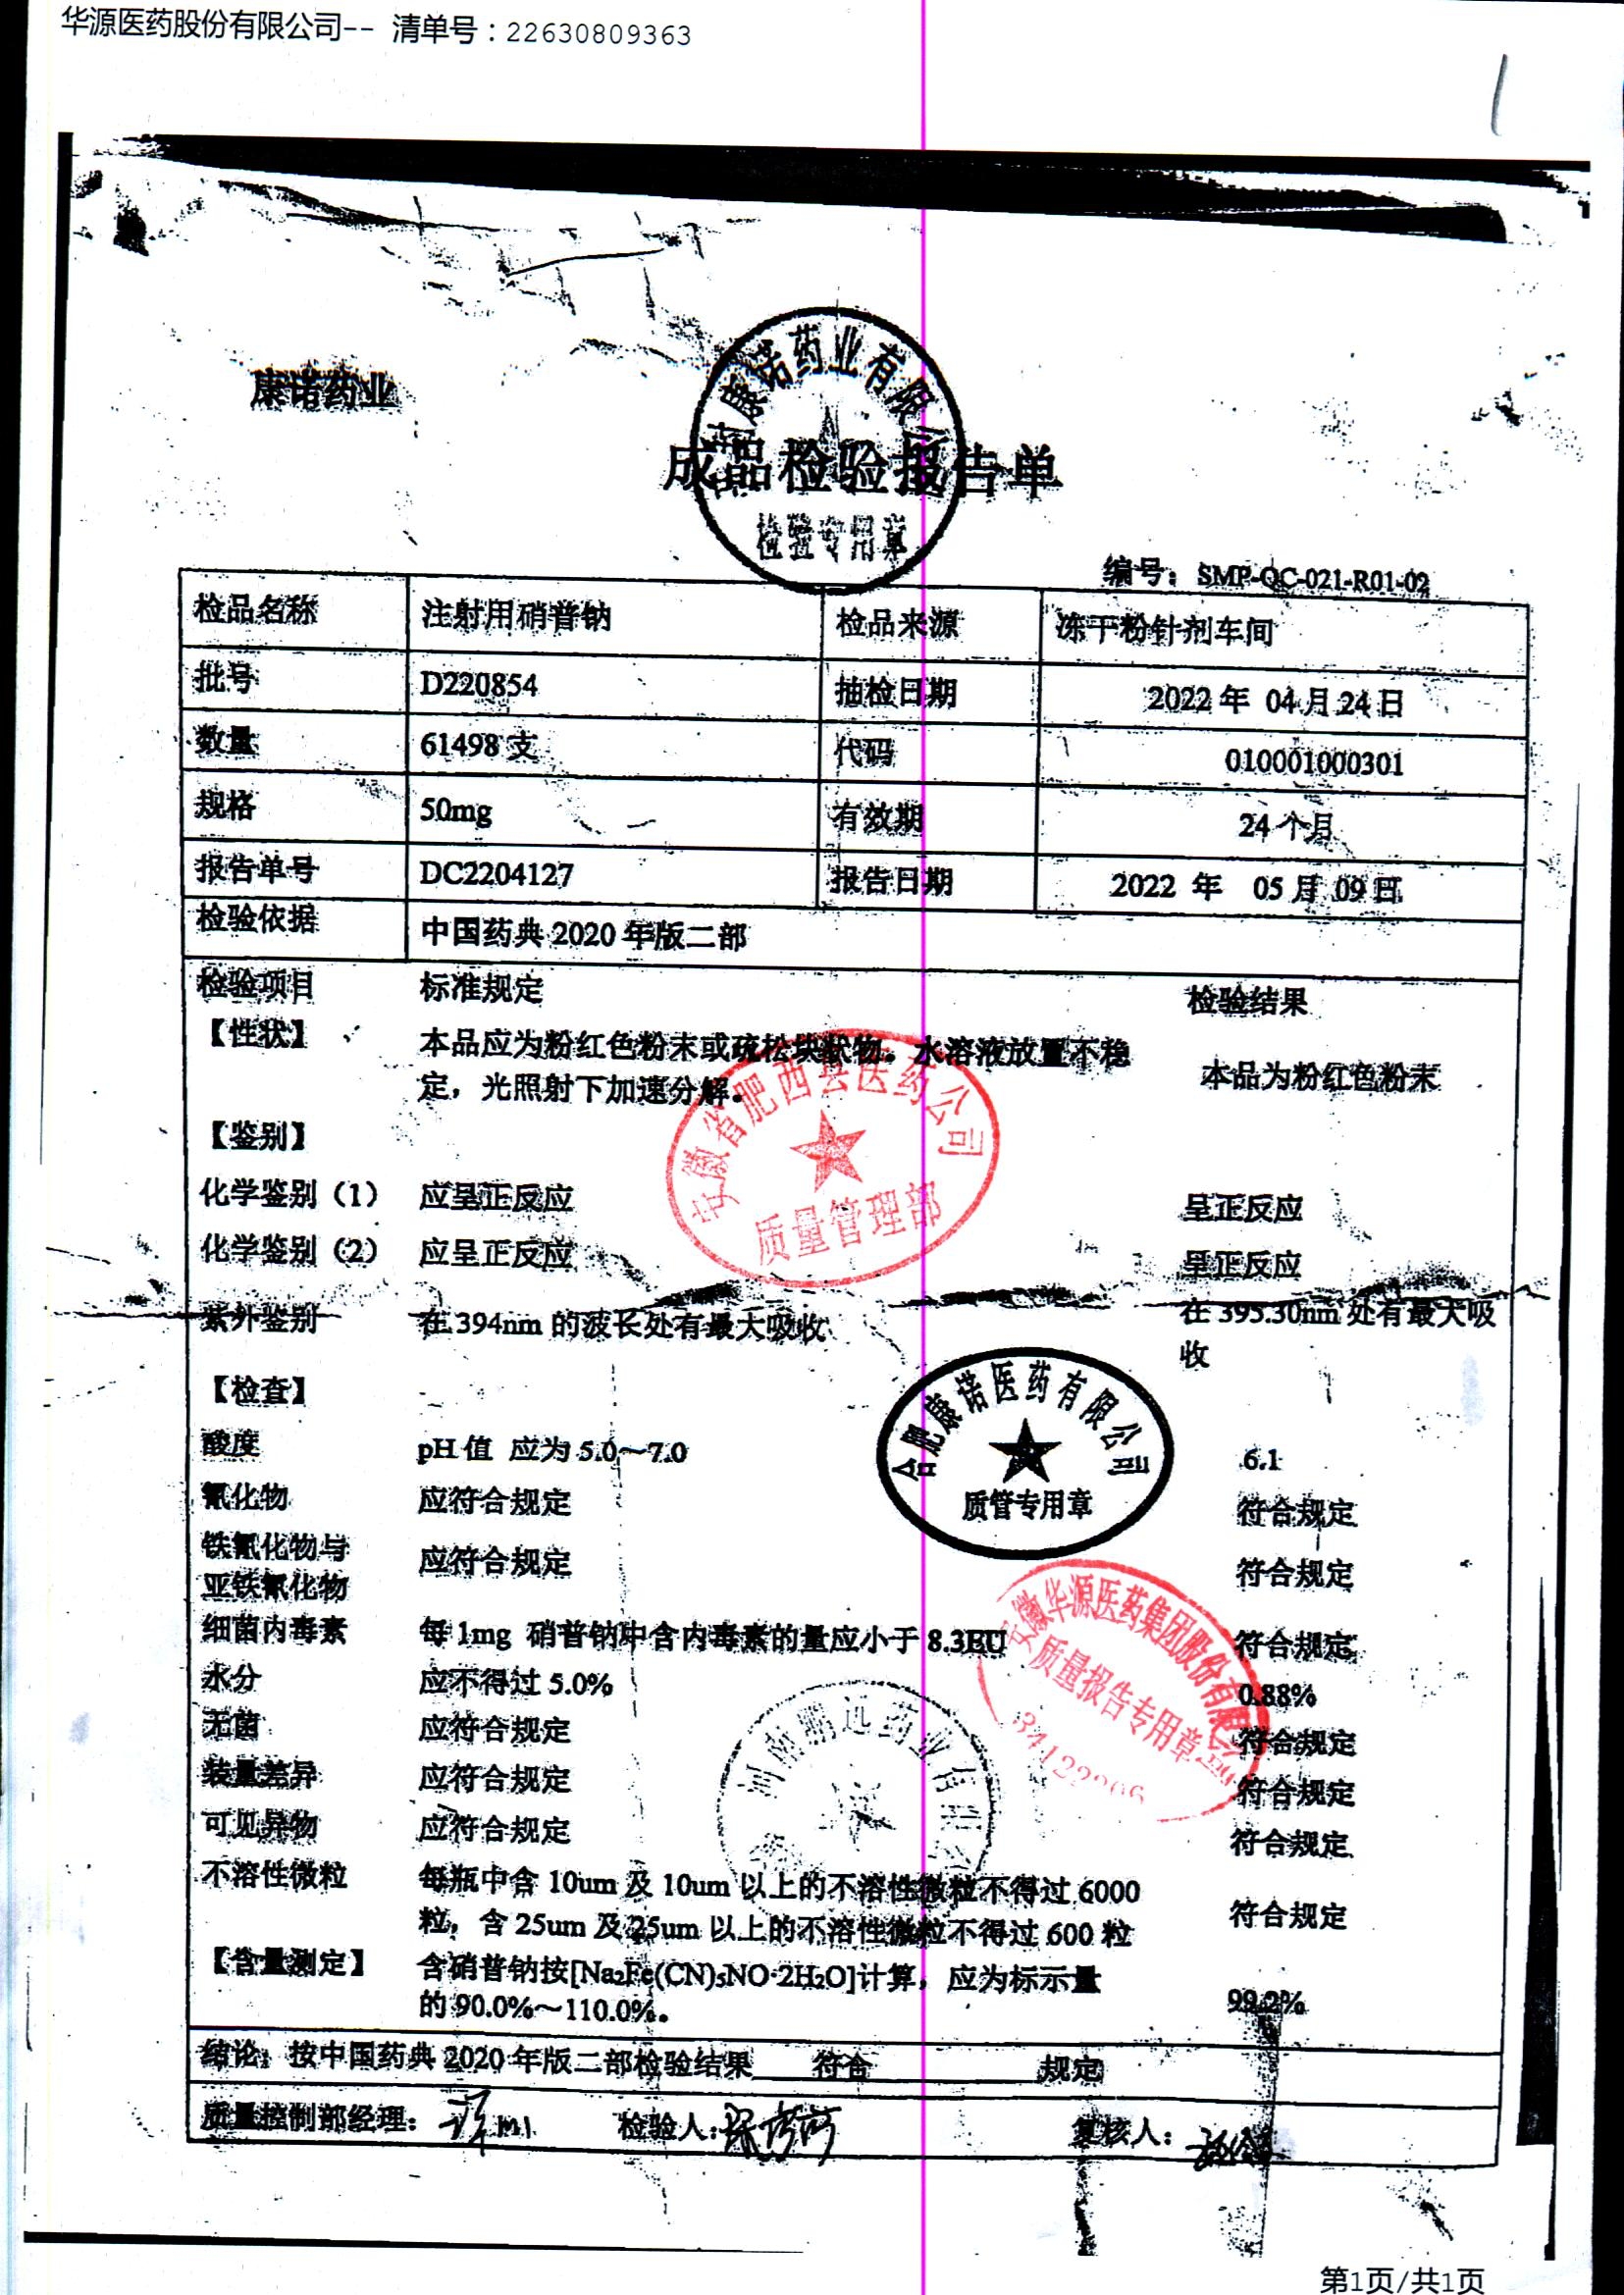 华源医药股份有限公司-- 清单号：22630809363
康诺药业
康诺药业有限
成品检验报告单
检验专用章
编号：SMP-QC-021-R01-02
检品名称 注射用硝普钠 检品来源 冻干粉针剂车间
批号 D220854 抽检日期 2022 年 04 月 24 日
数量 61498 支 代码 010001000301
规格 50mg 有效期 24 个月
报告单号 DC2204127 报告日期 2022 年 05 月 09 日
检验依据 中国药典 2020 年版二部
检验项目 标准规定 检验结果
【性状】 本品应为粉红色粉末或疏松块状物。水溶液放置不稳
定，光照射下加速分解。 本品为粉红色粉末
安徽省肥西县医药公司
质量管理部
【鉴别】
化学鉴别（1） 应呈正反应 呈正反应
化学鉴别（2） 应呈正反应 呈正反应
紫外鉴别 在 394nm 的波长处有最大吸收 在 395.30nm 处有最大吸
收
【检查】
合肥康诺医药有限公司
质管专用章
酸度 pH 值 应为 5.0～7.0 6.1
氰化物 应符合规定 符合规定
铁氰化物与
亚铁氰化物 应符合规定 符合规定
安徽华源医药集团股份有限公
质量报告专用章
细菌内毒素 每 1mg 硝普钠中含内毒素的量应小于 8.3EU 符合规定
水分 应不得过 5.0% 0.88%
无菌 应符合规定 符合规定
河南鹏迅药业有限公
装量差异 应符合规定 符合规定
可见异物 应符合规定 符合规定
不溶性微粒 每瓶中含 10um 及 10um 以上的不溶性微粒不得过 6000
粒，含 25um 及 25um 以上的不溶性微粒不得过 600 粒 符合规定
【含量测定】 含硝普钠按[Na₂Fe(CN)₅NO·2H₂O]计算，应为标示量
的 90.0%～110.0%。 99.2%
结论：按中国药典 2020 年版二部检验结果 符合 规定
质量控制部经理： 检验人： 复核人：
第1页/共1页